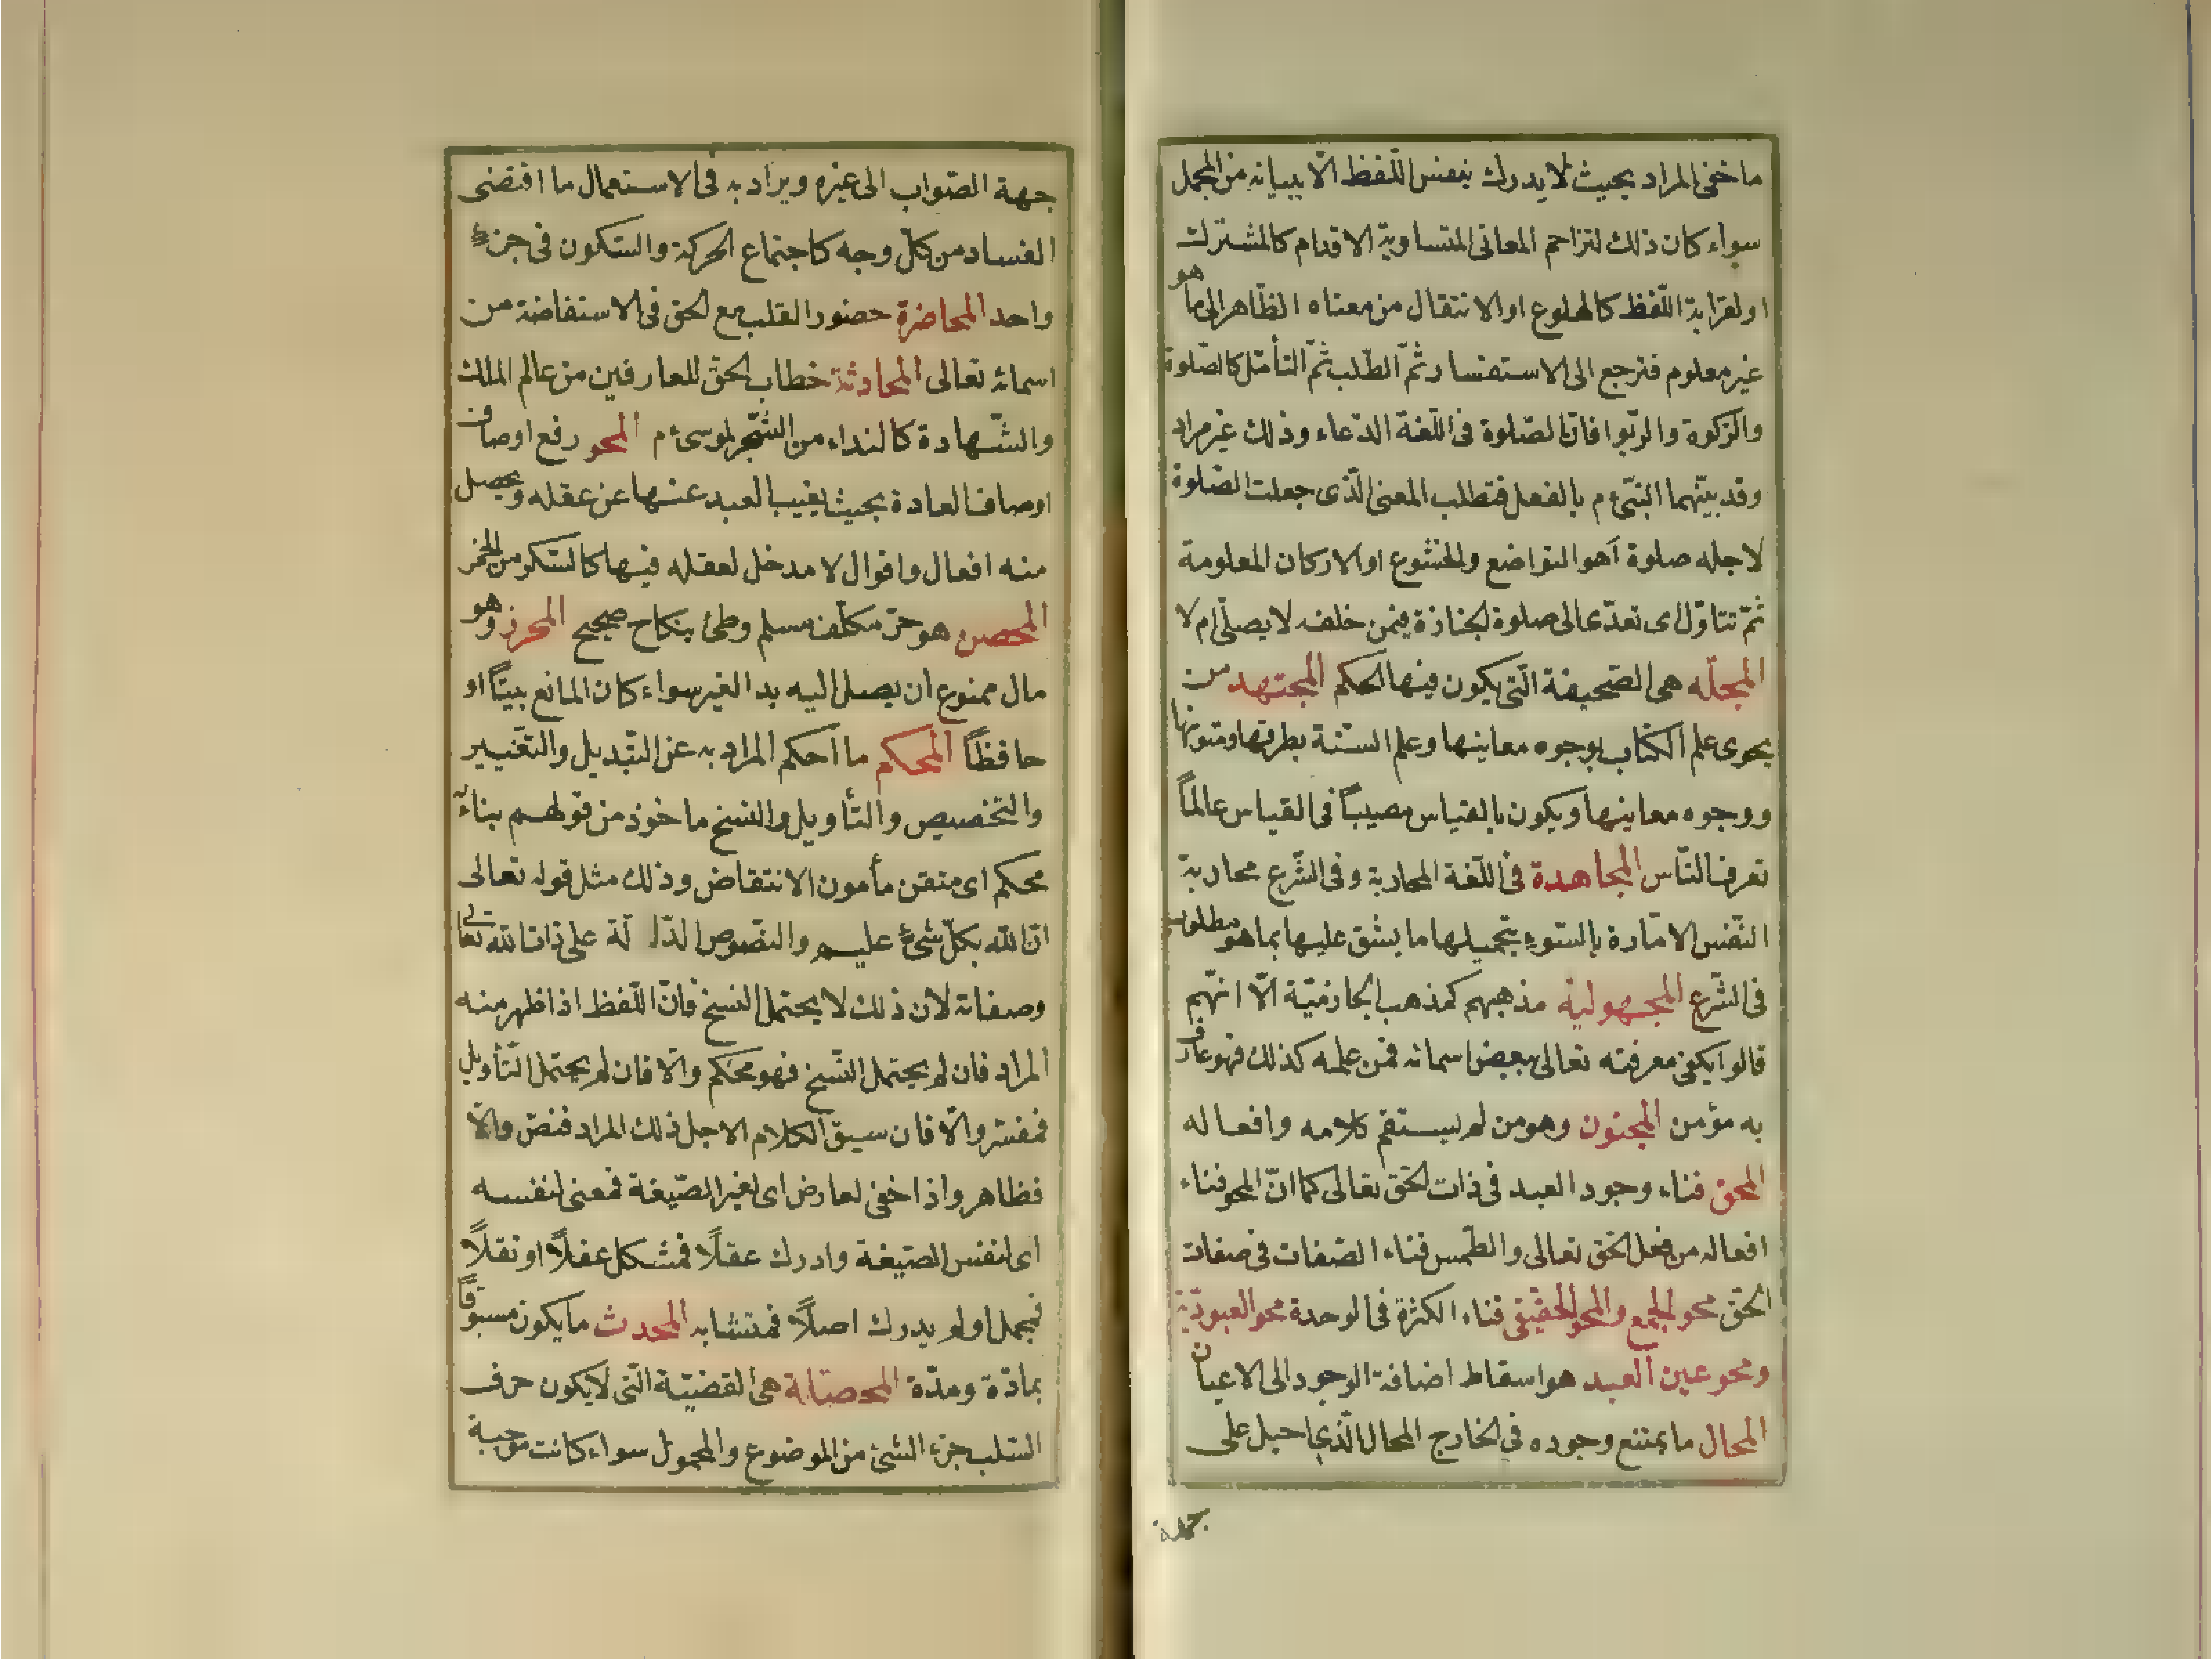 ما خفى المراد بحيث لا يدرك بنفس اللّفظ الّا ببيانه من المجمل
سواء كان ذلك لتزاحم المعانى المتساوية الاقدام كالمشترك
او لغرابة اللّفظ كالهلوع او الانتقال من معناه الظّاهر الى ما هو
غير معلوم فترجع الى الاستفسار ثمّ الطّلب ثمّ التأمّل كالصّلوة
والزكوة والرّبوا فانّ الصّلوة فى اللّغة الدّعاء وذلك غير مراد
وقد بيّنهما النبىّ ءم بالفعل فتطلب المعنى الّذى جعلت الصّلوة
لاجله صلوة أهو التواضع والخشوع او الاركان المعلومة
ثمّ تتاوّل اى تعدّى الى صلوة الجنازة فيمن خلف لا يصلّى ام لا
المجلّه هى الصّحيفة الّتى يكون فيها الحكم المجتهد من
يحوى علم الكتاب بوجوه معانيها وعلم السنّة بطرقها ومتونها
ووجوه معانيها ويكون بالقياس مصيباً فى القياس عالماً
تعرف النّاس المجاهدة فى اللّغة المحاربة وفى الشّرع محاربة
النّفس الامّارة بالسّوء بتحميلها ما يشق عليها بما هو مطلوب
فى الشّرع المجهولية مذهبهم كمذهب الحازميّة الّا انّهم
قالوا يكفى معرفته تعالى ببعض اسمائه فمن علمه كذلك فهو عارف
به مؤمن المجنون وهو من لم يستقم كلامه وافعاله
المحق فناء وجود العبد فى ذات الحق تعالى كما انّ المحو فناء
افعاله من فعل الحق تعالى والطّمس فناء الصّفات فى صفات
الحقّ محو الجمع والمحو الحقيقى فناء الكثرة فى الوحدة محو العبوديّة
ومحو عين العبد هو اسقاط اضافة الوجود الى الاعيان
المحال ما يمتنع وجوده في الخارج المحال الّذى احيل على
جهة
جهة الصّواب الى غيره ويراد به فى الاستعمال ما اقتضى
الفساد من كلّ وجه كاجتماع الحركة والسّكون فى جزء
واحد المحاضرة حضور القلب مع الحق فى الاستفاضة من
اسمائه تعالى المحادثة خطاب الحق للعارفين من عالم الملك
والشّهادة كالنداء من الشّجر لموسى ءم المحو رفع اوصاف
اوصاف العادة بحيث يغيب العبد عنها عن عقله ويحصل
منه افعال واقوال لا مدخل لعقله فيها كالسّكر من الخمر
المحصن هو حرّ مكلّف مسلم وطئ بنكاح صحيح المحرز وهو
مال ممنوع ان يصل اليه يد الغير سواء كان المانع بيتاً او
حافظاً المحكم ما احكم المراد به عن التّبديل والتغيير
والتّخصيص والتأويل والنسخ ماخوذ من قولهم بناء
محكم اى متقن مأمون الانتقاض وذلك مثل قوله تعالى
انّ الله بكلّ شئ عليم والنصّوص الدّالّة على ذات الله تعالى
وصفاته لان ذلك لا يحتمل النسخ فانّ اللّفظ اذا ظهر منه
المراد فان لم يحتمل النّسخ فهو محكم والّا فان لم يحتمل التّأويل
فمفسّر والّا فان سيق الكلام الاجل ذلك المراد فنصّ والّا
فظاهر واذا خفى لعارض اى لغير الصّيغة فمعنى لنفسه
اى لنفس الصّيغة وادرك عقلًا فمشكل عقلًا او نقلًا
فمجمل او لم يدرك اصلًا فمتشابه المحدث ما يكون مسبوقاً
بمادّة ومدّة المحصّلة هى القضيّة الّتى لا يكون حرف
السّلب جزء الشئ من الموضوع والمحمول سواء كانت موجبة